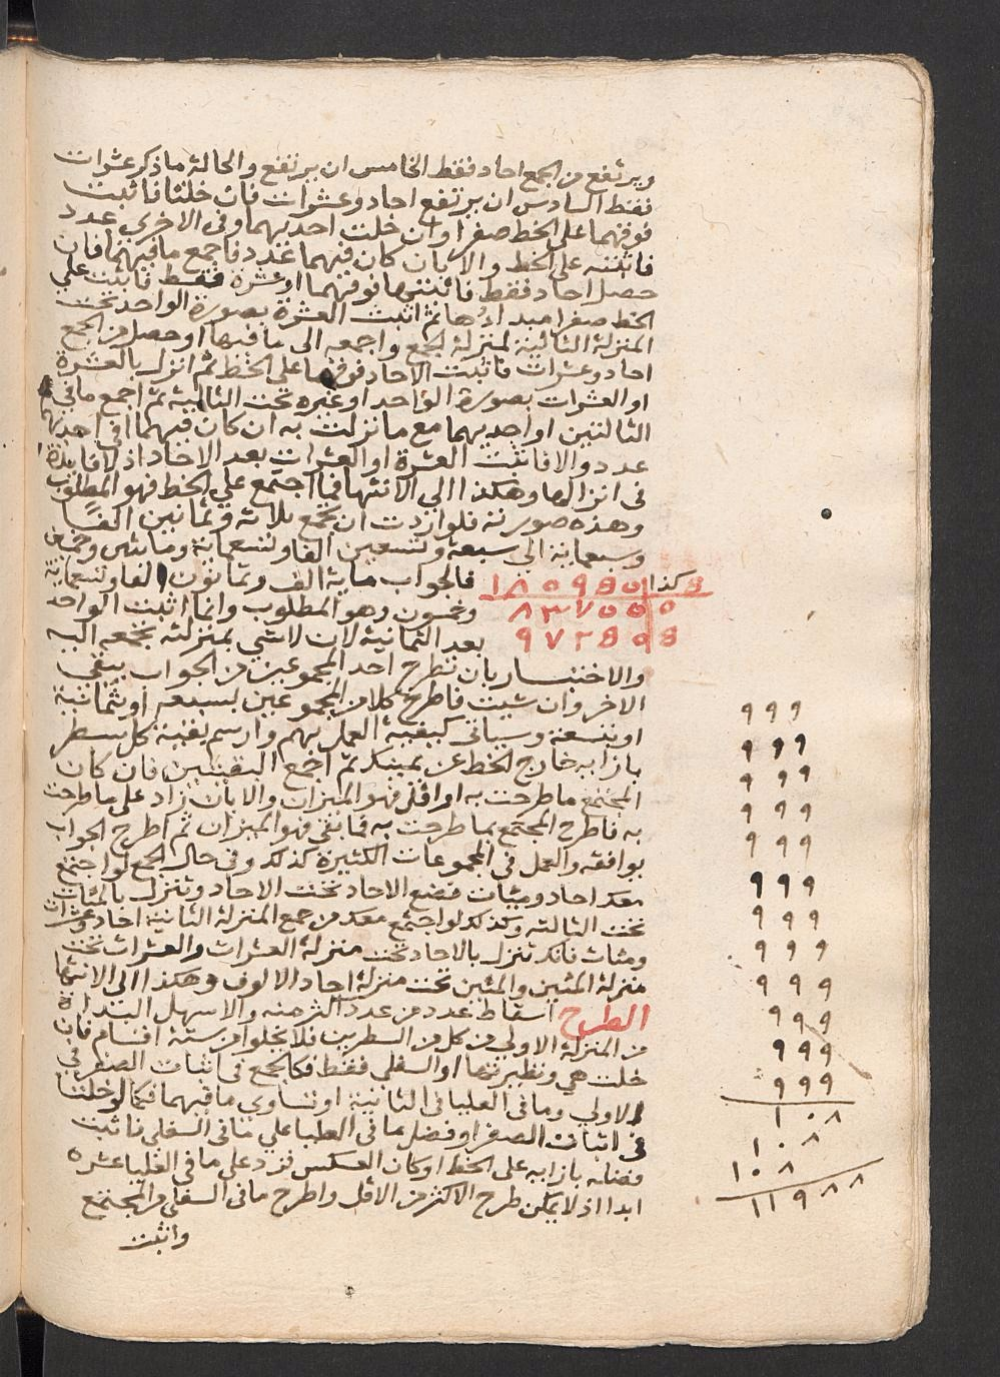 ويرتفع من الجمع احاد فقط الخامس ان يرتفع والحالة ما ذكر عشرات
فقط السادس ان يرتفع احاد وعشرات فان خلتا فاثبت
فوقهما على الخط صفرا وان خلت احديهما وفى الاخرى عدد
فاثبته على الخط والا بان كان فيهما عدد فاجمع ما فيهما فان
حصل احاد فقط فاثبتها فوقهما او عشرة فقط فاثبت على
الخط صفرا ثم اثبت العشرة بصورة الواحد تحت
المنزلة الثانية لمنزلة الجمع واجمعه الى ما فيها او حصل من الجمع
احاد وعشرات فاثبت الاحاد فوقهما على الخط ثم انزل بالعشرة
او العشرات بصورة الواحد او غيره تحت الثانية ثم اجمع ما فى
الثالثين او احديهما مع ما نزلت به ان كان فيهما او فى احديهما
عدد والا فاثبت العشرة او العشرات بعد الاحاد اذ لا فايدة
فى انزالها وهكذا الى الانتها فما اجتمع على الخط فهو المطلوب
وهذه صورته فلو اردت ان تجمع ثلاثة وثمانين الفا
وسبعماية الى سبعة وتسعين الفا وتسعماية ومايتين وخمسين
هكذا ١٨٠٩٥٠ فالجواب ماية الف وثمانون الفا وتسعماية
٨٣٧٠٠ وخمسون وهو المطلوب وانما اثبت الواحد
٩٧٢٥٠ بعد الثمانية لان لا شي بمنزلته تجمعه اليه
والاختبار بان تطرح احد المجموعين من الجواب يبقى
الاخر وان شيت فاطرح كلا من المجموعين بسبعه او بثمانية
او بتسعة وسياتى كيفية العمل بهم وارسم بقية كل سطر
بازايه خارج الخط عن يمينك ثم اجمع البقيتين فان كان
المجتمع ما طرحت به او اقل فهو الميزان والا بان زاد على ما طرحت
به فاطرح المجتمع بما طرحت به فما بقى فهو الميزان ثم اطرح الجواب
يوافقه والعمل فى المجموعات الكثيرة كذلك وفى حال الجمع لو اجتمع
معك احاد ومئات فضع الاحاد تحت الاحاد وتنزل بالمئات
تحت الثالثة وكذلك لو اجتمع معك من جمع المنزلة الثانية احاد وعشرات
ومئات فانك تنزل بالاحاد تحت منزلة العشرات والعشرات تحت
منزلة المئين والمئين تحت منزلة احاد الالوف وهكذا الى الانتها
الطرح اسقاط عدد من عدد اكثر منه والاسهل البداة
من المنزلة الاولى من كل من السطرين فلا يخلوا من ستة اقسام فان
خلت هى ونظيرتها او السفلى فقط فكالجمع فى اثبات الصفر فى
الاولى وما فى العليا فى الثانية او تساوى ما فيهما فكما لو خلتا
فى اثبات الصفر او فضل ما فى العليا على ما فى السفلى فاثبت
فضله بازايه على الخط او كان العكس فزد على ما فى العليا عشرة
ابدا اذ لا يمكن طرح الاكثر من الاقل واطرح ما فى السفلى من المجتمع
واثبت
٩٩٩
٩٩٩
٩٩٩
٩٩٩
٩٩٩
٩٩٩
٩٩٩
٩٩٩
٩٩٩
٩٩٩
٩٩٩
٩٩٩
١٠٨
١٠٨
١٠٨
١١٩٨٨